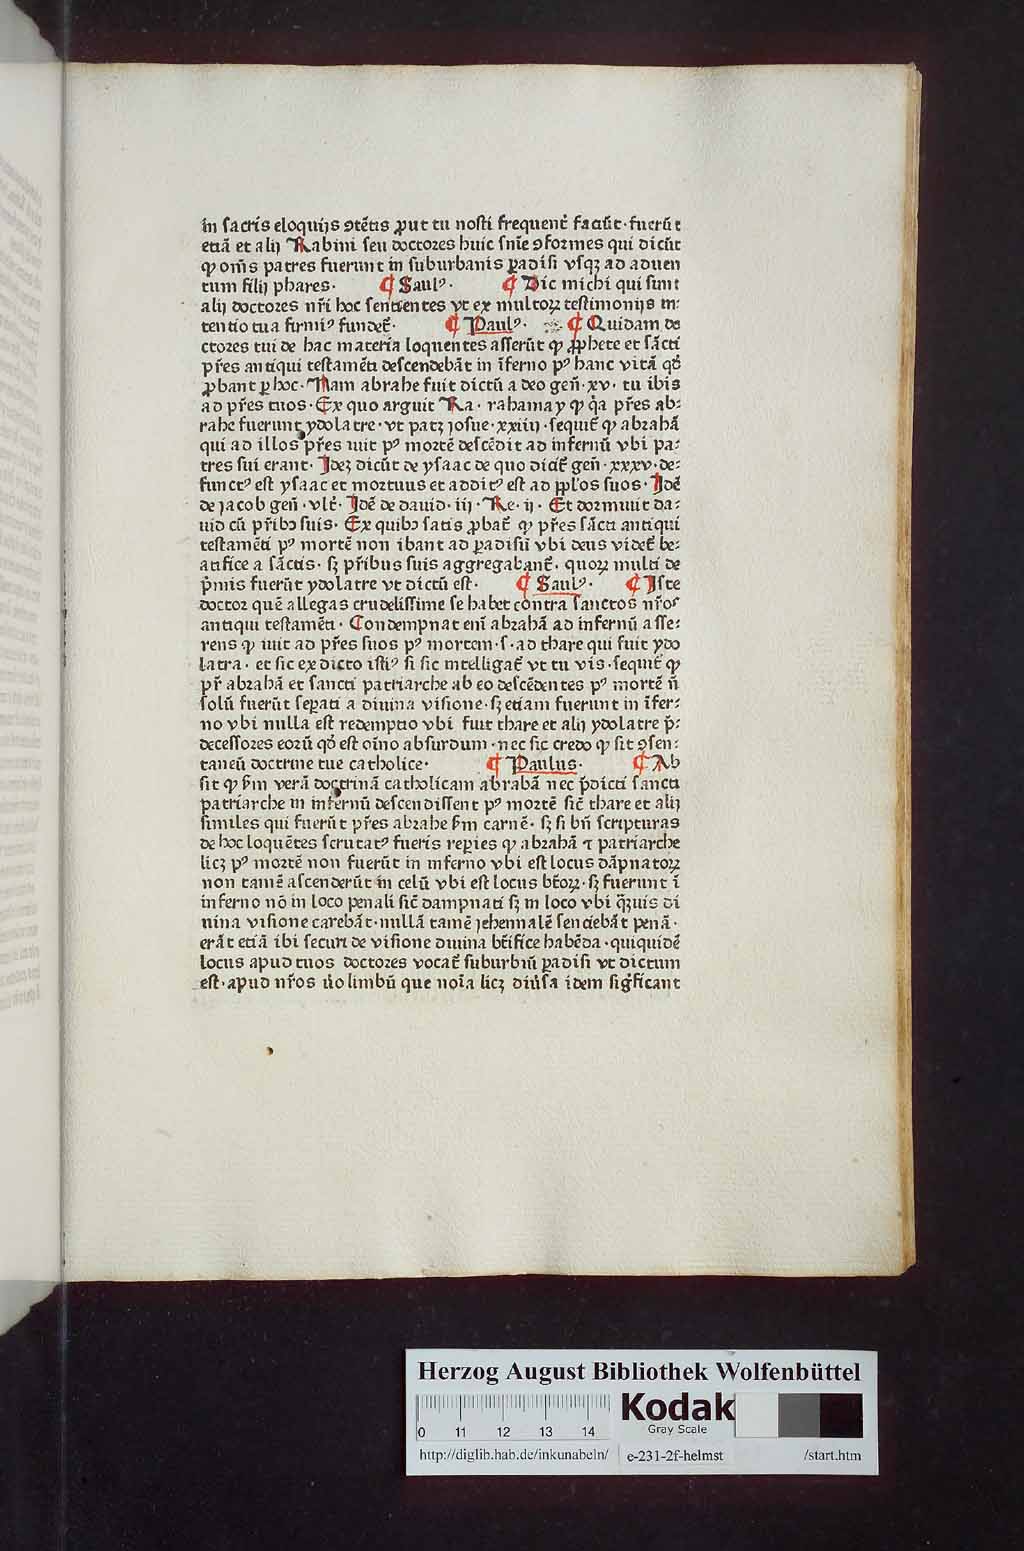 in sacris eloquijs ꝯtẽtis ꝓut tu nosti frequent᷑ faciũt·fuerũt
etiã et alij Rabini seu doctores huic sñie ꝯformes qui dicũt
ꝙ om̃s patres fuerunt in suburbanis ꝑadisi vsqꝫ ad aduen
tum filij phares· ¶ Saulꝰ· ¶ Dic michi qui sunt
alij doctores nr̃i hoc sentientes vt ex multoꝝ testimonijs in⸗
tentio tua firmiꝰ fundet᷑· ¶ Paulꝰ· ¶ Quidam do
ctores tui de hac materia loquentes asserũt ꝙ ꝓphete et sãcti
pr̃es antiqui testamẽti descendebãt in ĩferno pꝰ hanc vitã qd̃
ꝓbant ꝑ hoc· Nam abrahe fuit dictũ a deo geñ·xv· tu ibis
ad pr̃es tuos·Ex quo arguit Ra· rahamay ꝙ q̃a pr̃es ab⸗
rahe fuerunt ydolatre·vt patꝫ josue·xxiiij·sequit᷑ ꝙ abrahã
qui ad illos pr̃es iuit pꝰ mortẽ descẽdit ad infernũ vbi pa⸗
tres sui erant· Jdeꝫ dicũt de ysaac de quo dicit᷑ geñ·xxxv·de⸗
functꝰ est ysaac et mortuus et additꝰ est ad ppl'os suos·Jdẽ
de jacob geñ·vlt᷑· Jdẽ de dauid·iij·Re·ij· Et dormuit da⸗
uid cũ pr̃ibꝫ suis· Ex quibꝫ satis ꝓbat᷑ ꝙ pr̃es sãcti antiqui
testamẽti pꝰ mortẽ non ibant ad ꝑadisũ vbi deus videt᷑ be⸗
atifice a sãctis·sꝫ pr̃ibus suis aggregabant᷑·quoꝝ multi de
p̃mis fuerũt ydolatre vt dictũ est· ¶ Saulꝰ· ¶ Jste
doctor quẽ allegas crudelissime se habet contra sanctos nr̃os
antiqui testamẽti·Condempnat eni᷑ abrahã ad infernũ asse⸗
rens ꝙ iuit ad pr̃es suos pꝰ mortem·s·ad thare qui fuit ydo
latra·et sic ex dicto istiꝰ si sic intelligat᷑ vt tu vis·sequit᷑ ꝙ
pr̃ abrahã et sancti patriarche ab eo descẽdentes pꝰ mortẽ ñ
solũ fuerũt seꝑati a diuina visione·sꝫ etiam fuerunt in ĩfer⸗
no vbi nulla est redemptio vbi fuit thare et alij ydolatre p̃⸗
decessores eorũ qd̃ est oĩno absurdum·nec sic credo ꝙ sit ꝯsen⸗
taneũ doctrine tue catholice· ¶ Paulus· ¶ Ab
sit ꝙ ẜm verã doctrinã catholicam abrahã nec p̃dicti sancti
patriarche in infernũ descendissent pꝰ mortẽ sic᷑ thare et alij
similes qui fuerũt pr̃es abrahe ẜm carnẽ·sꝫ si bñ scripturas
de hoc loquẽtes scrutatꝰ fueris reꝑies ꝙ abrahã ⁊ patriarche
licꝫ pꝰ mortẽ non fuerũt in inferno vbi est locus dãpnatoꝝ
non tamẽ ascenderũt in celũ vbi est locus bt̃oꝝ·sꝫ fuerunt ĩ
inferno nõ in loco penali sic᷑ dampnati sꝫ in loco vbi q̃uis di
uina visione carebãt·nullã tamẽ jehennalẽ sentiebãt penã·
erãt etiã ibi securi de visione diuina bt̃ifice habẽda·quiquidẽ
locus apud tuos doctores vocat᷑ suburbiũ ꝑadisi vt dictum
est·apud nr̃os v̾o limbũ que noĩa licꝫ diu̾sa idem sigñficant
Herzog August Bibliothek Wolfenbüttel
0 11 12 13 14
Kodak
Gray Scale
http://diglib.hab.de/inkunabeln/ e-231-2f-helmst /start.htm